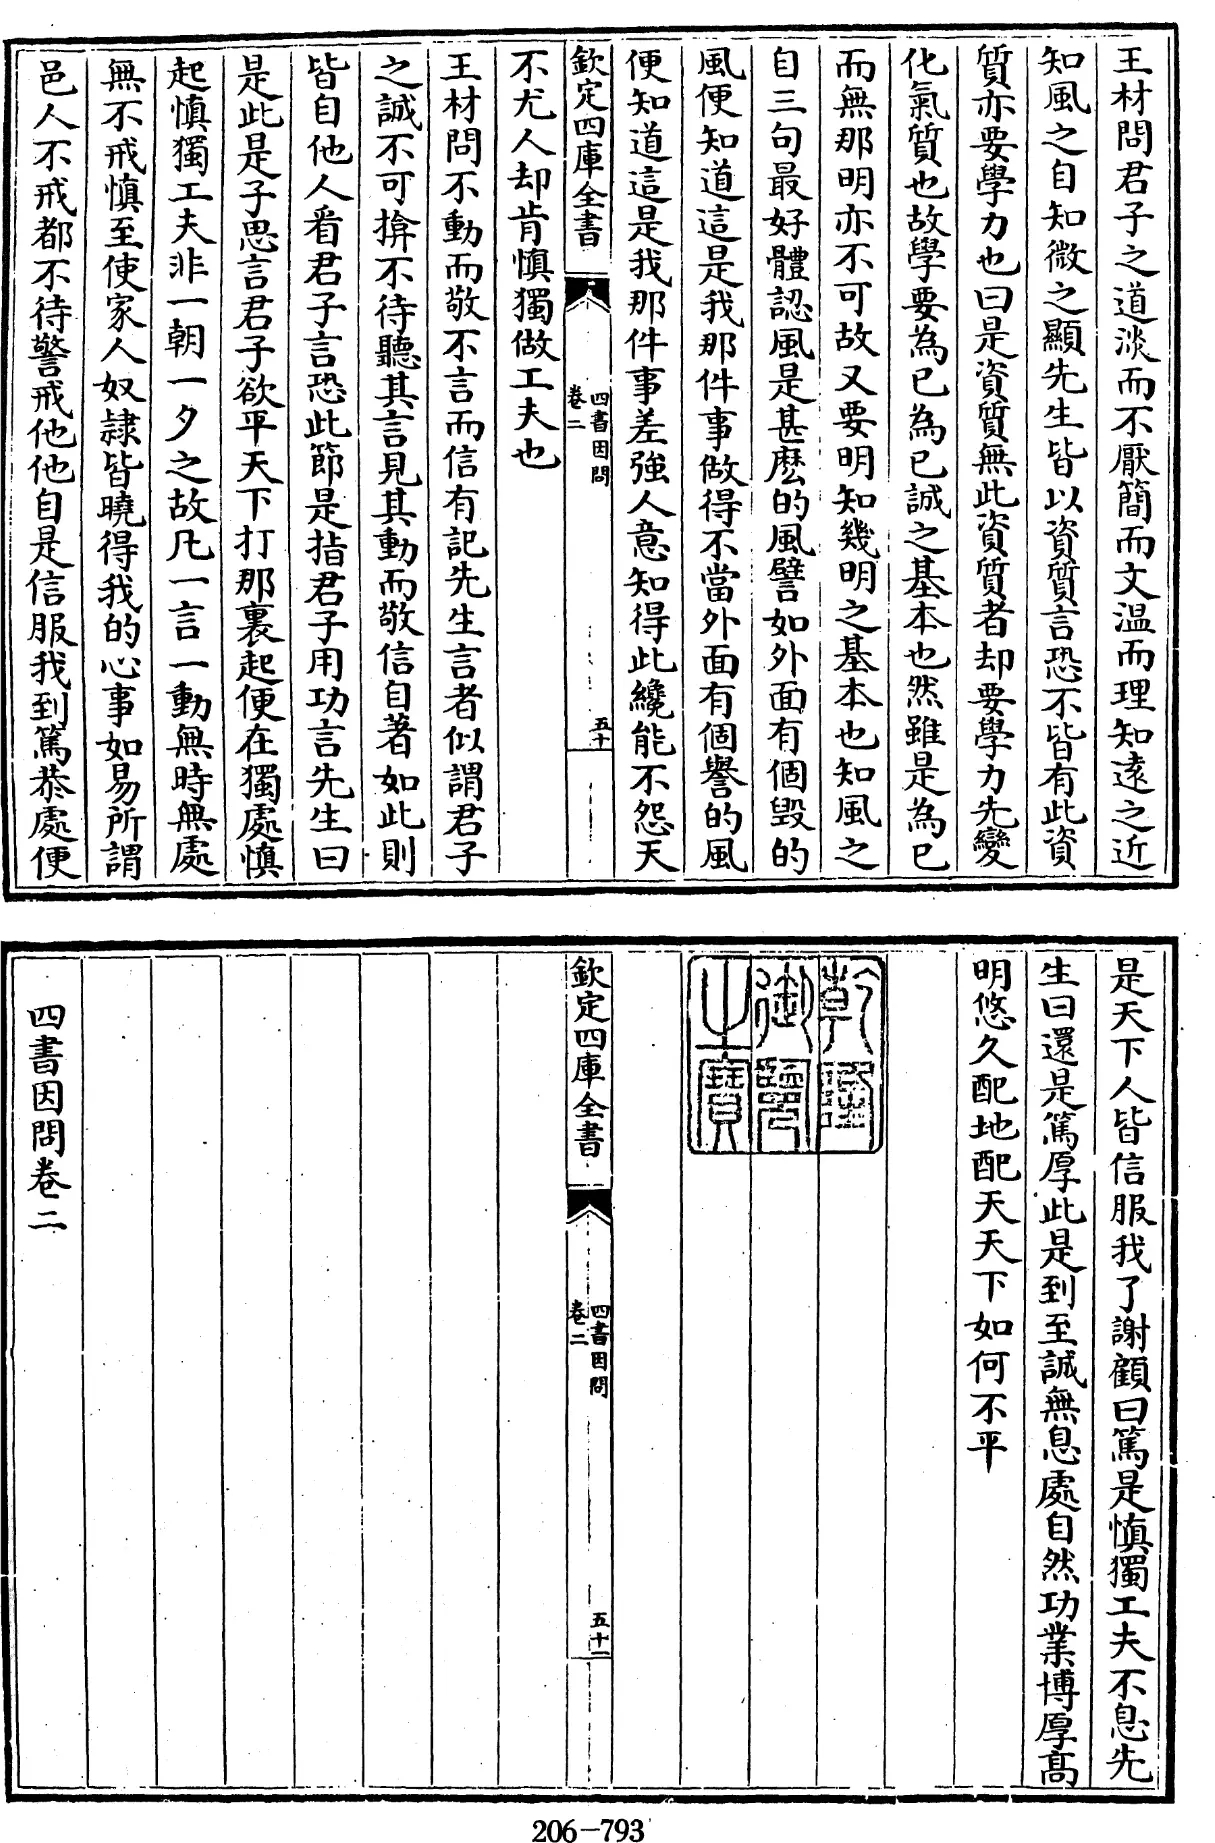 王材問君子之道淡而不厭簡而文温而理知遠之近
知風之自知微之顯先生皆以資質言恐不皆有此資
質亦要學力也曰是資質無此資質者却要學力先變
化氣質也故學要為已為已誠之基本也然雖是為已
而無那明亦不可故又要明知幾明之基本也知風之
自三句最好體認風是甚麽的風譬如外面有個毀的
風便知道這是我那件事做得不當外面有個譽的風
便知道這是我那件事差強人意知得此纔能不怨天
欽定四庫全書
四書因問
卷二
五十
不尤人却肯慎獨做工夫也
王材問不動而敬不言而信有記先生言者似謂君子
之誠不可揜不待聽其言見其動而敬信自著如此則
皆自他人看君子言恐此節是指君子用功言先生曰
是此是子思言君子欲平天下打那裏起便在獨處慎
起慎獨工夫非一朝一夕之故凡一言一動無時無處
無不戒慎至使家人奴隷皆曉得我的心事如易所謂
邑人不戒都不待警戒他他自是信服我到篤恭處便
是天下人皆信服我了謝顧曰篤是慎獨工夫不息先
生曰還是篤厚此是到至誠無息處自然功業博厚髙
明悠久配地配天天下如何不平
乾隆
御覽
之寶
欽定四庫全書
四書因問
卷二
五十一
四書因問卷二
206-793